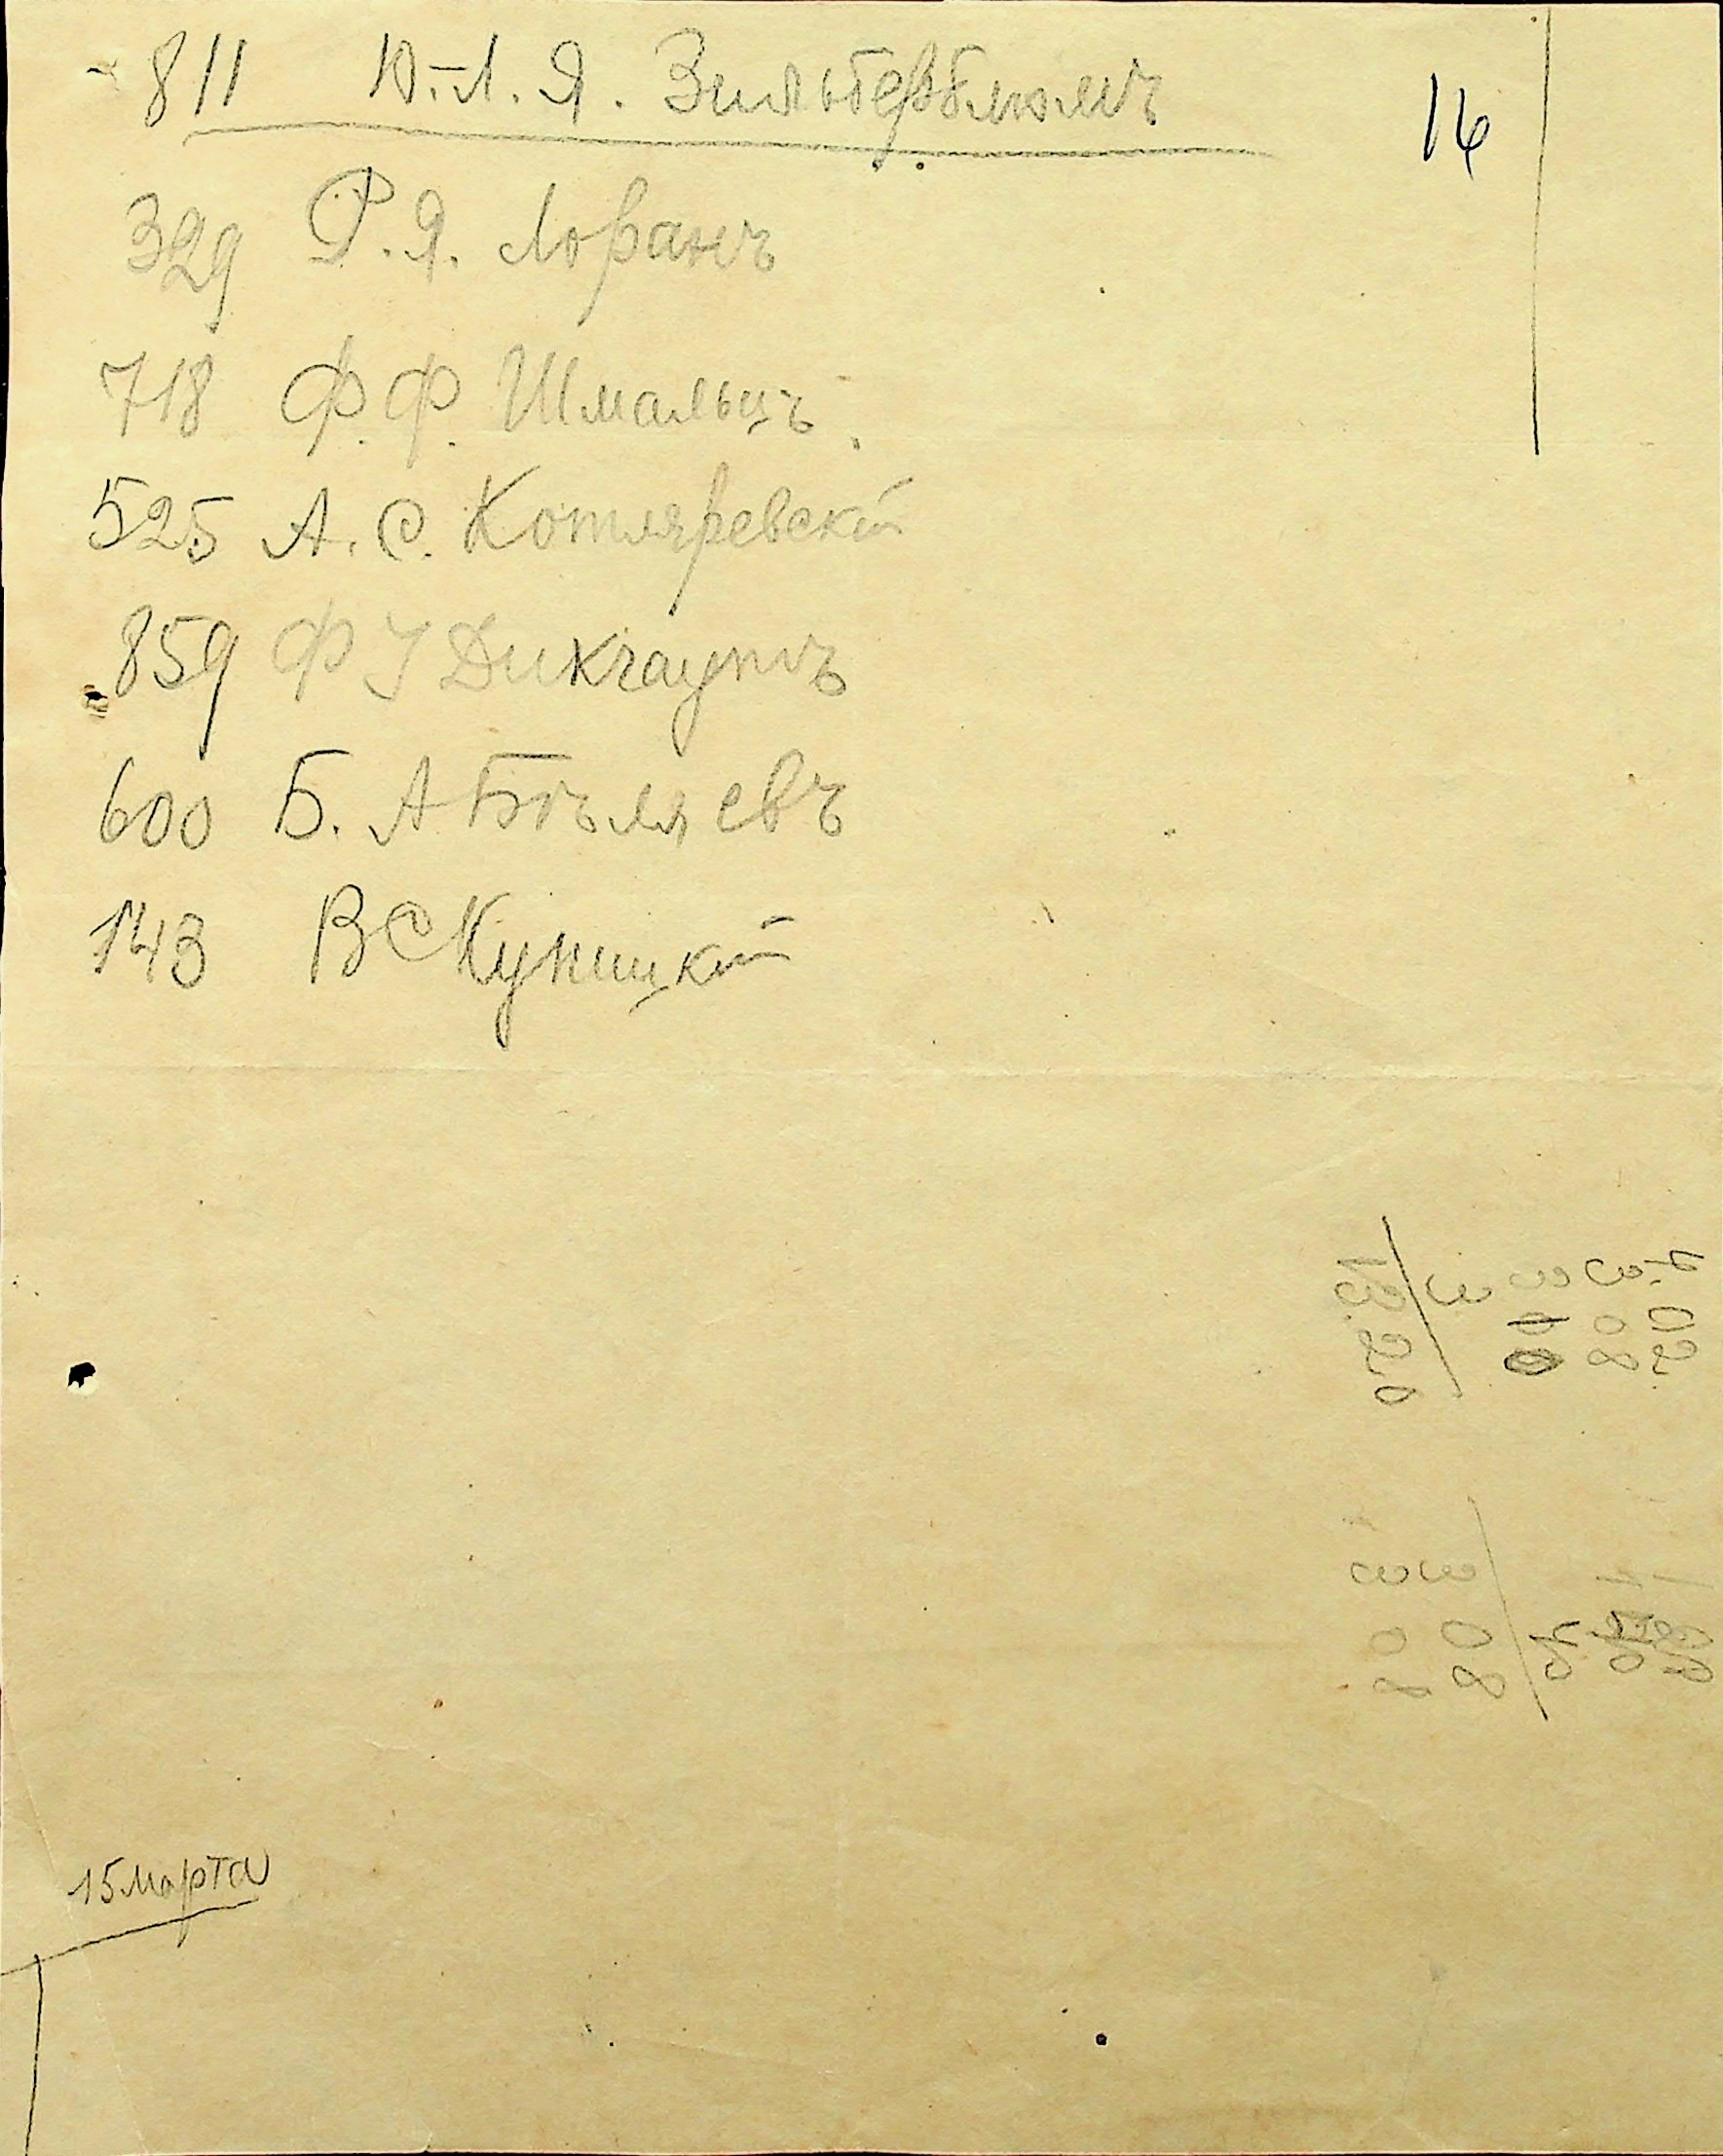 811 Ю.-Л. Я. Зильберблюмъ
16
329 Р. Я. Лоранъ
718 Ф. Ф. Шмальцъ.
525 А. С. Котляревскій
859 Ф У Дикгаутъ
600 Б. А Бѣляевъ
143 В С Куницкій
15 марта